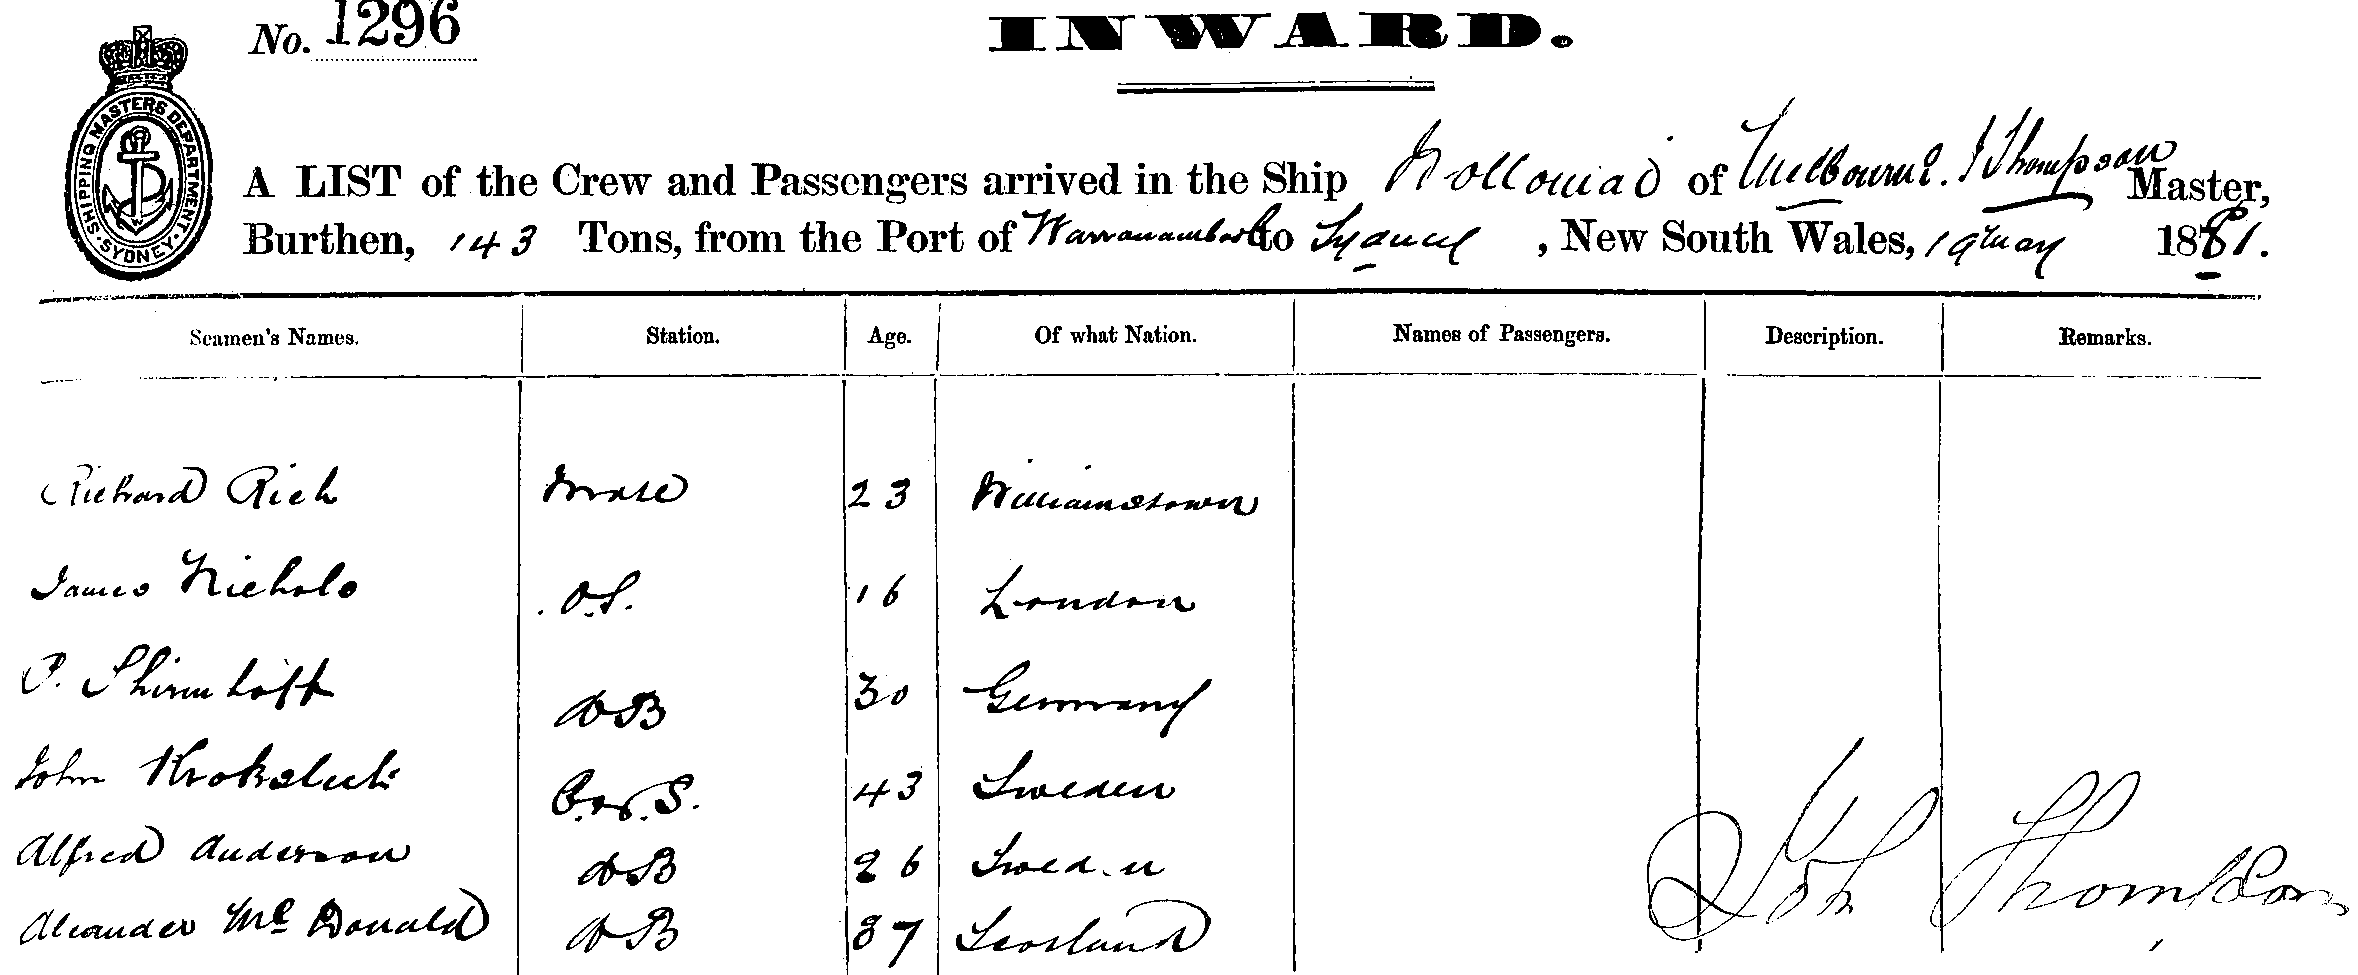 No. 1296
INWARD.
SHIPPING MASTERS DEPARTMENT. SYDNEY.
A LIST of the Crew and Passengers arrived in the Ship of Melbourne. J Thompson Master,
Burthen, 143 Tons, from the Port of to Sydney, New South Wales, 19 May 1881.
Seamen's Names. Station. Age. Of what Nation. Names of Passengers. Description. Remarks.
Richard Rich Mate 23 Williamstown
James Nichols O.S. 16 London
P. AB 30 Germany
John 43 Sweden
Alfred Anderson AB 26 Sweden
Alexander McDonald AB 37 Scotland
John Thompson